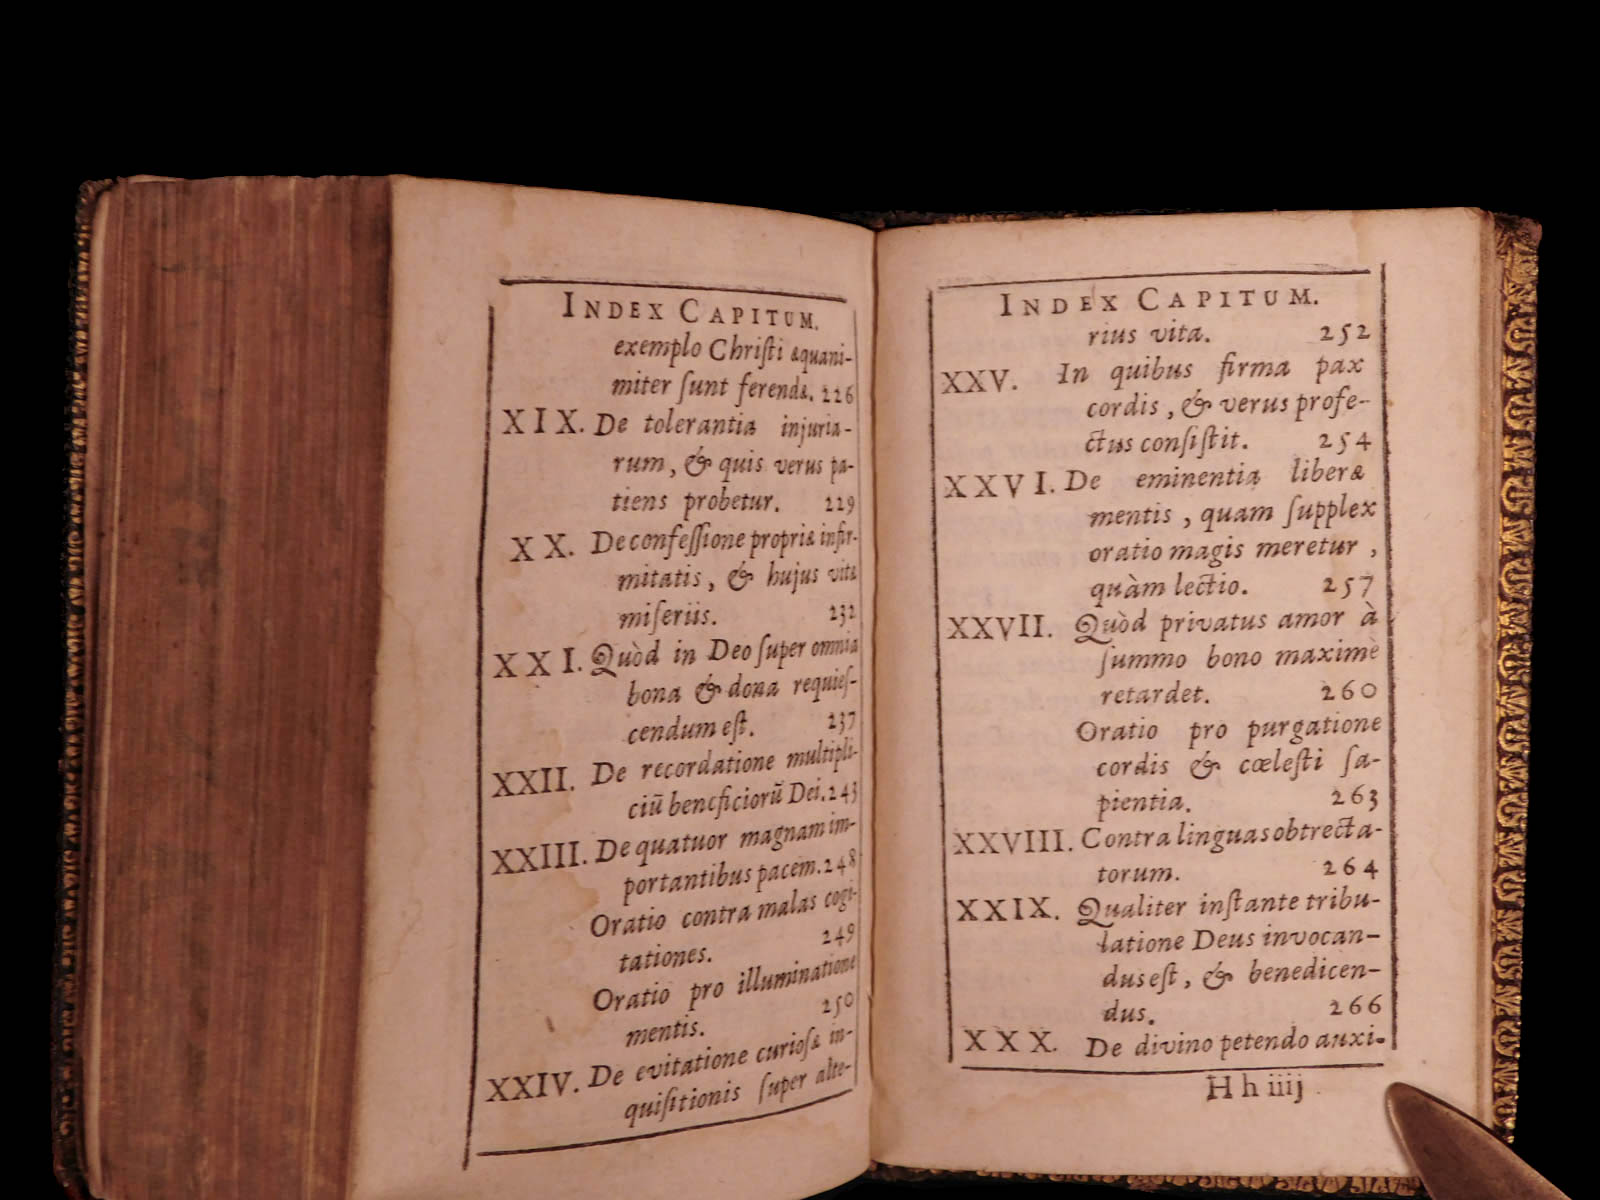 INDEX CAPITUM.
exemplo Chriſti æquani-
miter ſunt ferendæ. 226
XIX. De tolerantia injuria-
rum, & quis verus pa-
tiens probetur. 229
XX. De confeſſione propriæ infir-
mitatis, & hujus vitæ
miſeriis. 232
XXI. Quòd in Deo ſuper omnia
bona & dona requieſ-
cendum eſt. 237
XXII. De recordatione multipli-
ciū beneficiorū Dei. 243
XXIII. De quatuor magnam im-
portantibus pacem. 248
Oratio contra malas cogi-
tationes. 249
Oratio pro illuminatione
mentis. 250
XXIV. De evitatione curioſæ in-
quiſitionis ſuper alte-
INDEX CAPITUM.
rius vita. 252
XXV. In quibus firma pax
cordis, & verus profe-
ctus conſiſtit. 254
XXVI. De eminentia liberæ
mentis, quam ſupplex
oratio magis meretur,
quàm lectio. 257
XXVII. Quòd privatus amor à
ſummo bono maximè
retardet. 260
Oratio pro purgatione
cordis & cœleſti ſa-
pientia. 263
XXVIII. Contra linguas obtrecta-
torum. 264
XXIX. Qualiter inſtante tribu-
latione Deus invocan-
dus eſt, & benedicen-
dus. 266
XXX. De divino petendo auxi-
Hh iiij